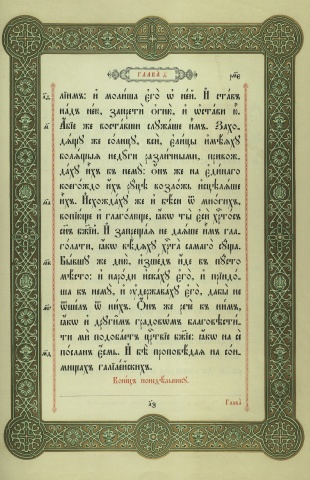 ГЛАВА̀ д҃.
рм҃є
лі́имъ: и҆ моли́ша є҆го̀ ѡ҆ не́й. И҆ ста́въ
над̾ не́ю, запретѝ ѻ҆гню̀, и҆ ѡ҆ста́ви ю҆̀.
А҆́бїе же воста́вши слꙋжа́ше и҆̀мъ. Заходѧ́-
щꙋ же со́лнцꙋ, всѝ, є҆ли́цы и҆мѣ́ѧхꙋ
болѧ́щыѧ недꙋ́ги разли́чными, привож-
да́хꙋ и҆̀хъ къ немꙋ̀: ѻ҆́нъ же на є҆ди́наго
коего́ждо и҆́хъ рꙋ́цѣ возло́жь, и҆сцѣлѧ́ше
и҆̀хъ. И҆схожда́хꙋ же и҆ бѣ́си ѿ мно́гихъ,
вопїю́ще и҆ глаго́люще, ꙗ҆́кѡ ты̀ є҆сѝ хрⷭ҇то́съ
сн҃ъ бж҃їй. И҆ запреща́ѧ не даѧ́ше и҆̀мъ гла-
го́лати, ꙗ҆́кѡ вѣ́дѧхꙋ хрⷭ҇та̀ самаго̀ сꙋ́ща.
Бы́вшꙋ же дню̀, и҆зше́дъ и҆́де въ пꙋ́сто
мѣ́сто: и҆ наро́ди и҆ска́хꙋ є҆го̀, и҆ прїидо́-
ша къ немꙋ̀, и҆ ᲂу҆держава́хꙋ є҆го̀, дабы̀ не
ѿше́лъ ѿ ни́хъ. Ѻ҆́нъ же речѐ къ ни̑мъ,
ꙗ҆́кѡ и҆ дрꙋги̑мъ градовѡ́мъ благовѣсти́-
ти ми̑ подоба́етъ црⷭ҇твїе бж҃їе: ꙗ҆́кѡ на сѐ
по́сланъ є҆́смь. И҆ бѣ̀ проповѣ́даѧ на со́н-
мищахъ галїле́йскихъ.
Коне́цъ понедѣ́льникꙋ.
Глава̀